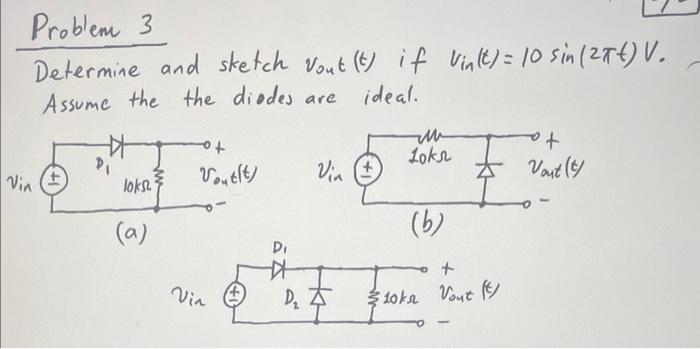 Problem 3
Determine and sketch Vout (t) if Vin(t) = 10 sin(2πt) V.
Assume the the diodes are ideal.
Vin
+
D1
10kΩ
+
Vout(t)
-
(a)
Vin
+
10kΩ
+
Vout(t)
-
(b)
Vin
+
D1
D2
10kΩ
+
Vout (t)
-